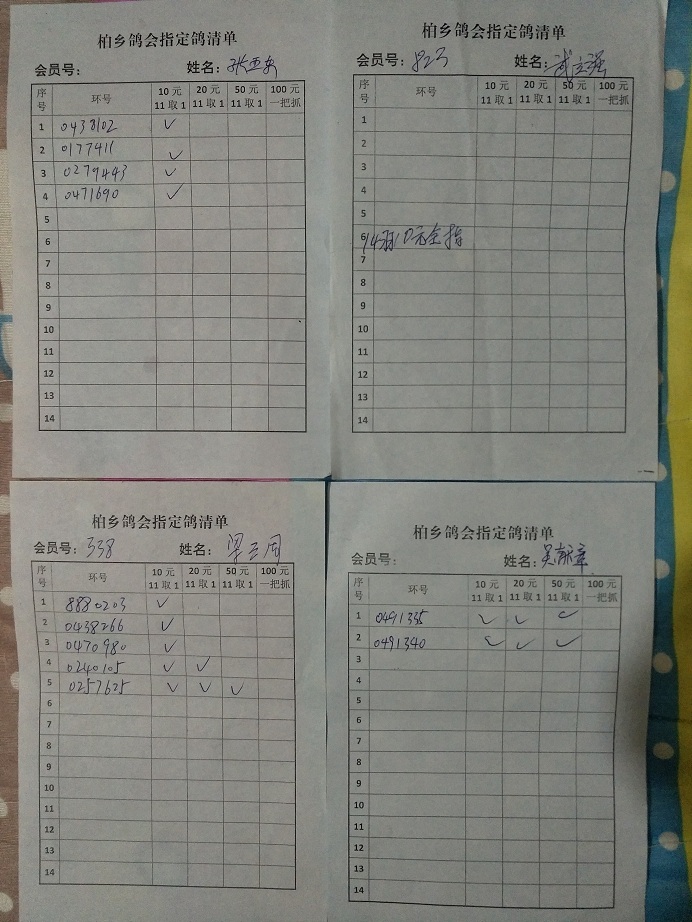 柏乡鸽会指定鸽清单
会员号： 姓名：张亚安
序号 环号 10元 11取1 20元 11取1 50元 11取1 100元 一把抓
1 0438102 ✓
2 0177411 ✓
3 0279443 ✓
4 0471690 ✓
5
6
7
8
9
10
11
12
13
14
柏乡鸽会指定鸽清单
会员号：823 姓名：武立强
序号 环号 10元 11取1 20元 11取1 50元 11取1 100元 一把抓
1
2
3
4
5
6 14羽10元全指
7
8
9
10
11
12
13
14
柏乡鸽会指定鸽清单
会员号：338 姓名：梁三周
序号 环号 10元 11取1 20元 11取1 50元 11取1 100元 一把抓
1 8880203 ✓
2 0438266 ✓
3 0470980 ✓
4 0240105 ✓ ✓
5 0257625 ✓ ✓ ✓
6
7
8
9
10
11
12
13
14
柏乡鸽会指定鸽清单
会员号： 姓名：吴献章
序号 环号 10元 11取1 20元 11取1 50元 11取1 100元 一把抓
1 0491335 ✓ ✓ ✓
2 0491340 ✓ ✓ ✓
3
4
5
6
7
8
9
10
11
12
13
14